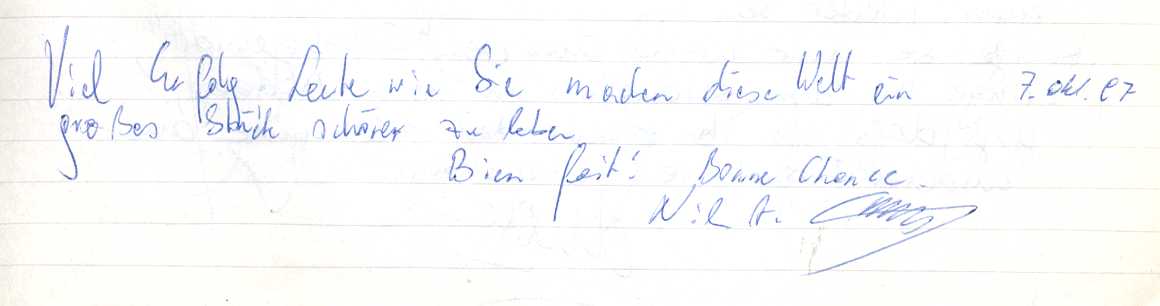 Viel Erfolg Leute wie Sie machen diese Welt ein 7. Okt. 07
großes Stück schöner zu leben
Bien fait! Bonne Chance.
Nil A.